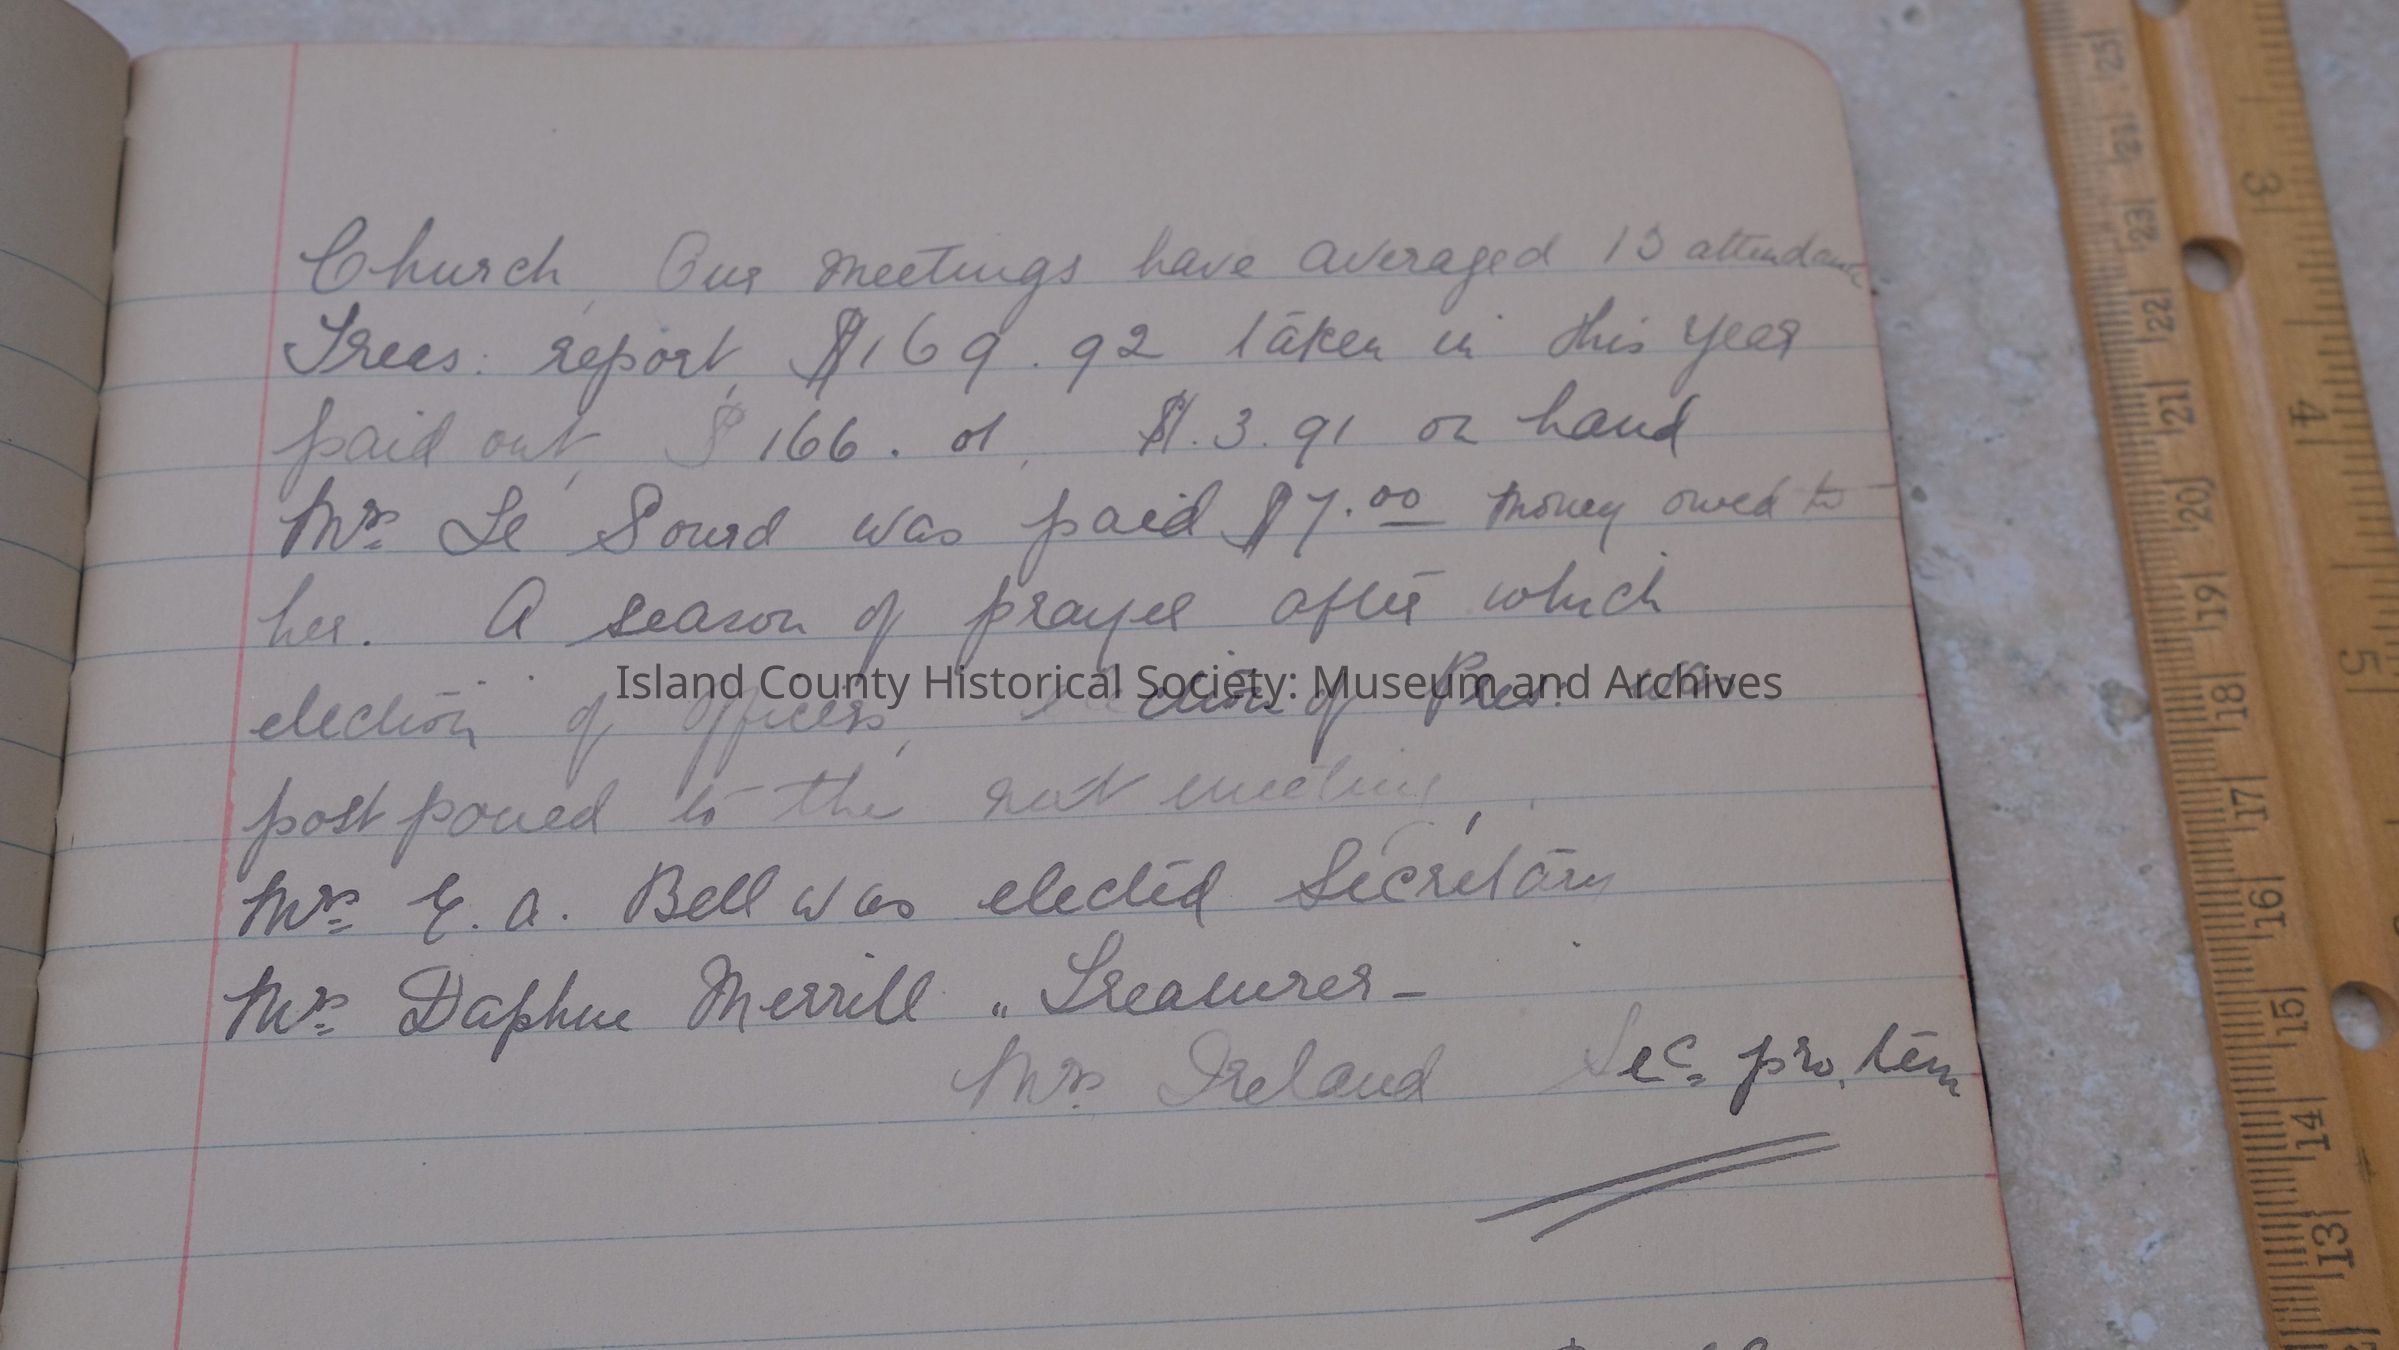 Church, Our meetings have averaged 13 attendance.
Treas: report, $169.92 taken in this year
paid out, $166.01, $.3.91 on hand
Mrs Le Sourd was paid $7.00 money owed to
her. A season of prayer after which
election of officers, Election of Pres: was
Island County Historical Society: Museum and Archives
post poned to the next meeting,
Mrs E. A. Bell was elected Secretary
Mrs Daphne Merrill " Treasurer-
Mrs Ireland Sec. pro. tem
25 24 23 22 21 20 19 18 17 16 15 14 13
3 4 5